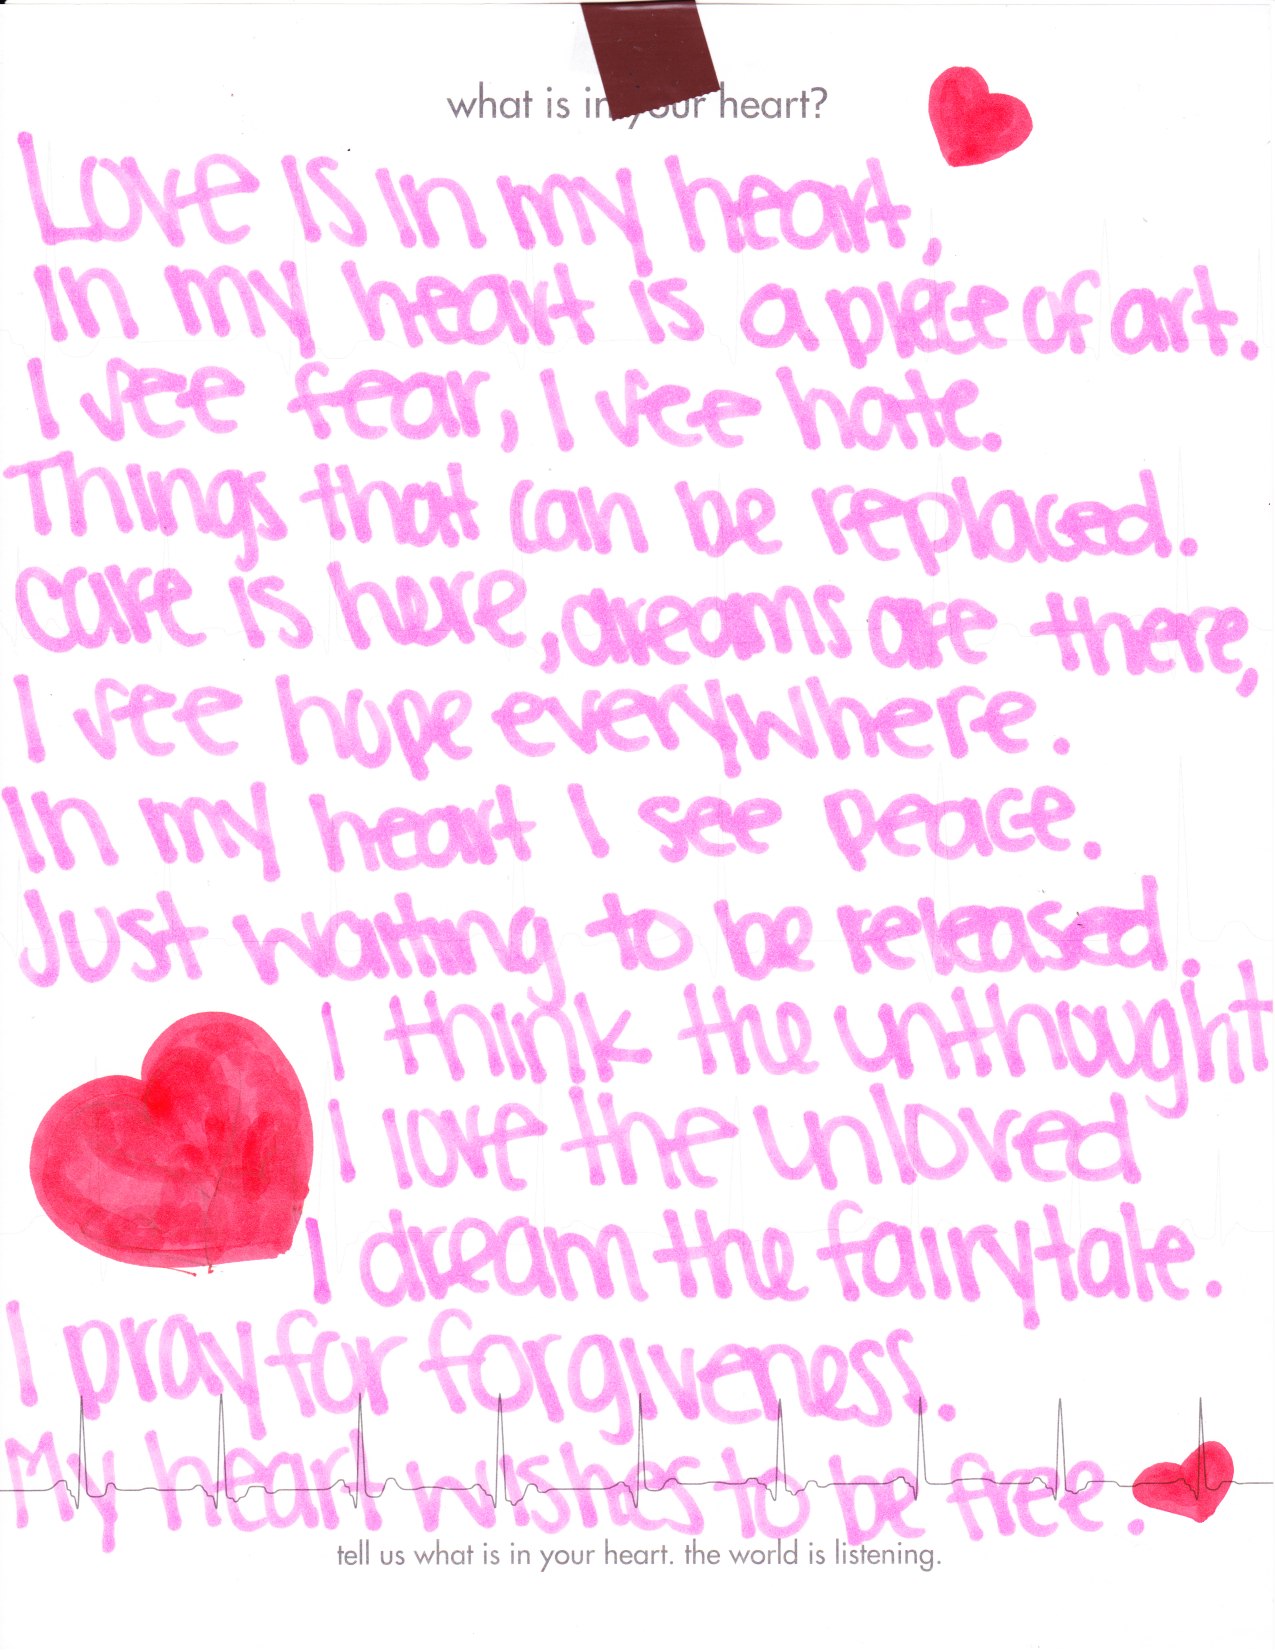 what is in your heart?
Love is in my heart,
In my heart is a piece of art.
I see fear, I see hate.
Things that can be replaced.
Care is here, dreams are there,
I see hope everywhere.
In my heart I see peace.
Just waiting to be released.
I think the unthought
I love the unloved
I dream the fairytale.
I pray for forgiveness.
My heart wishes to be free.
tell us what is in your heart. the world is listening.